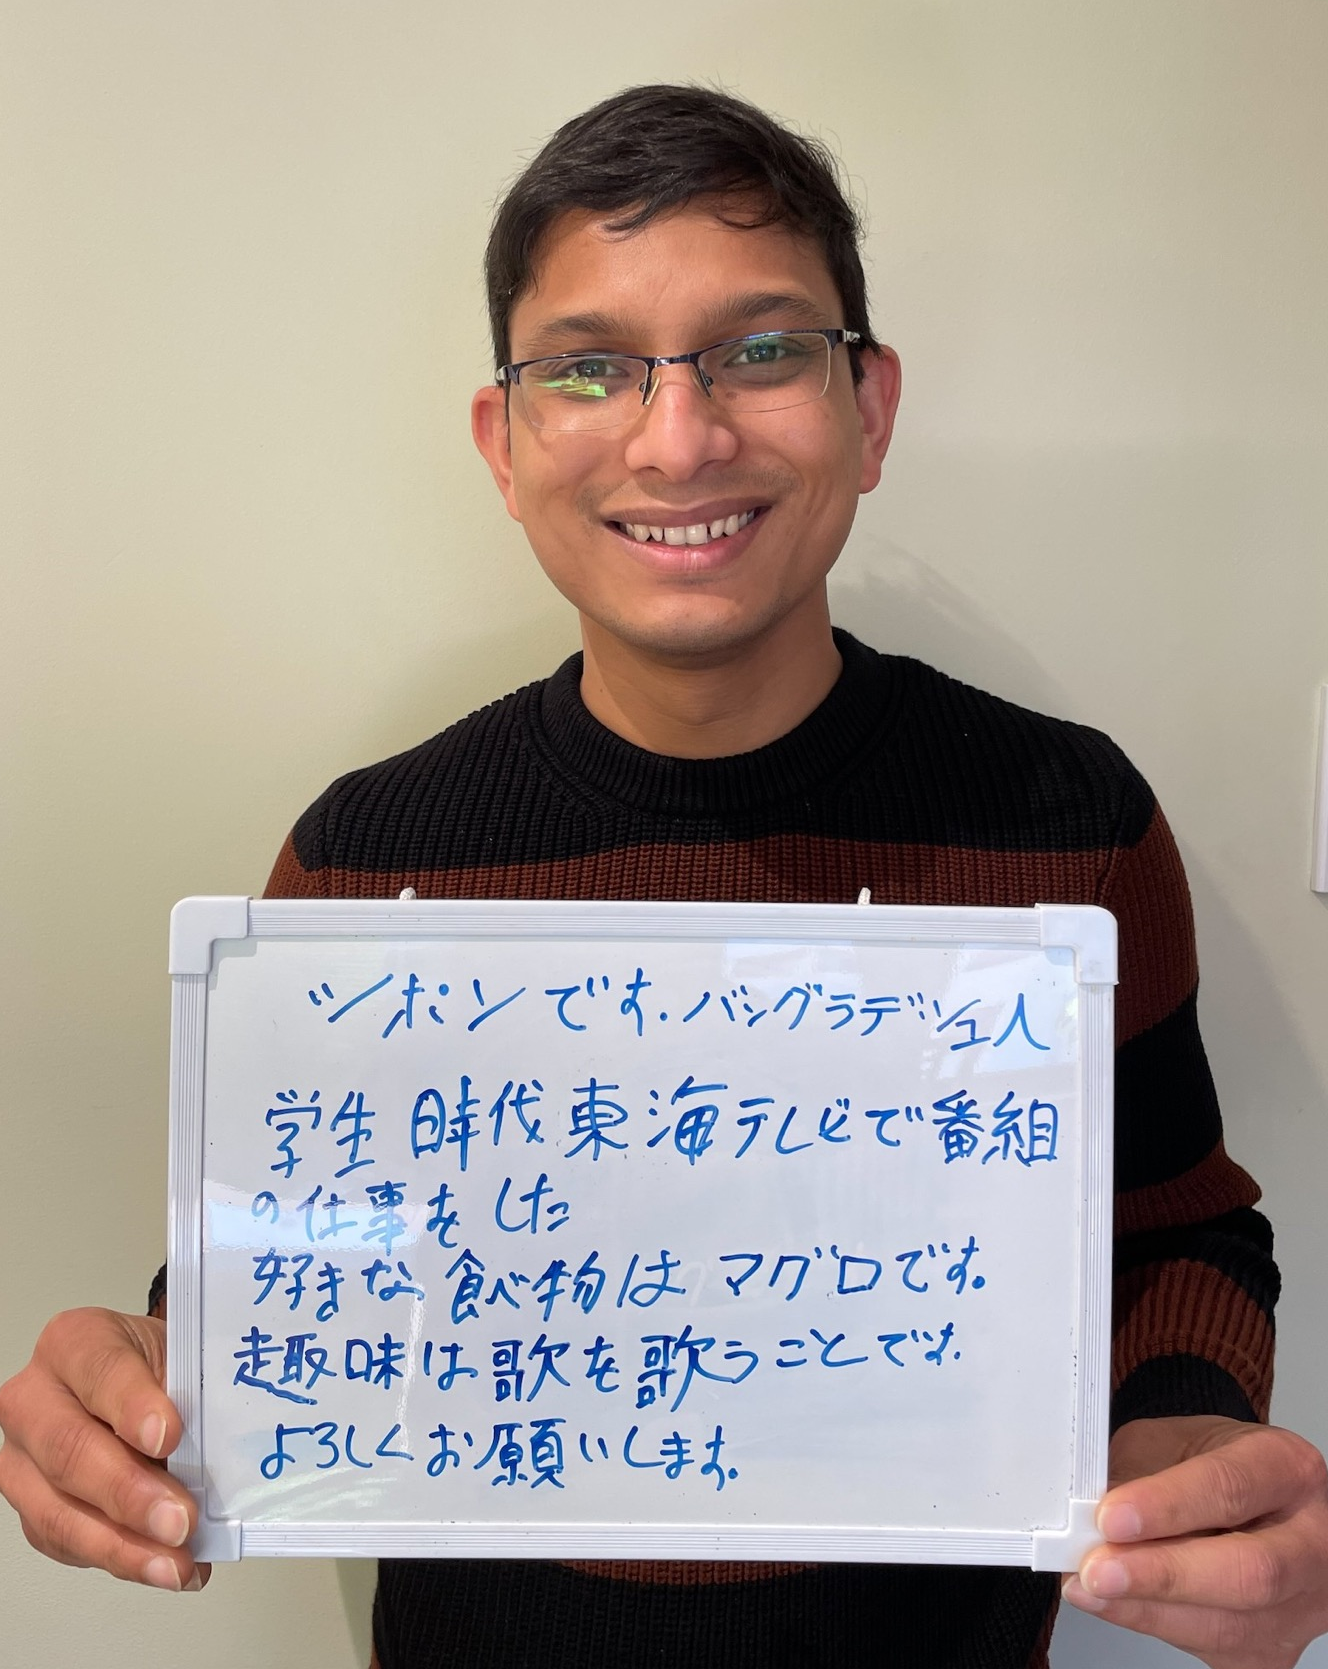 ツポンです.バングラデシュ人
学生時代東海テレビで番組
の仕事をした
好きな食べ物はマグロです。
趣味は歌を歌うことです.
よろしくお願いします。